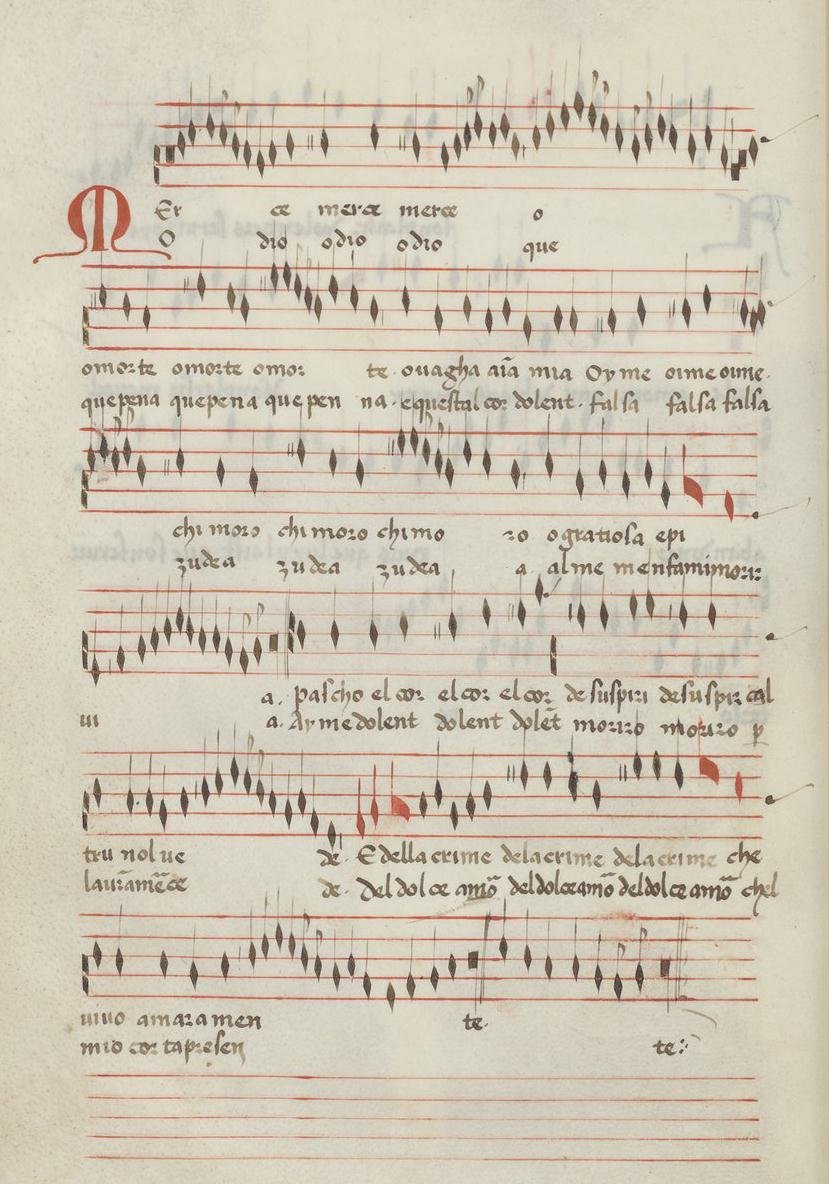 MEr ce merce merce o
O dio odio odio que
omorte omorte omor te · ouagha aīa mia Oyme oime oime ·
quepena quepena que pen na · equestal cor dolent · falsa falsa falsa
chi moro chi moro chi mo ro o gratiosa epi
zudea zudea zudea a al me
a · pascho el cor el cor el cor de suspiri de suspir cal
ui a · Ay me dolent dolent dolēt moriro moriro p
tru nol ue de · E della crime delacrime delacrime che
de · Del dolce amō del dolce amō del dolce amō chel
uiuo amaramen te ·
mio cor tapresen te :